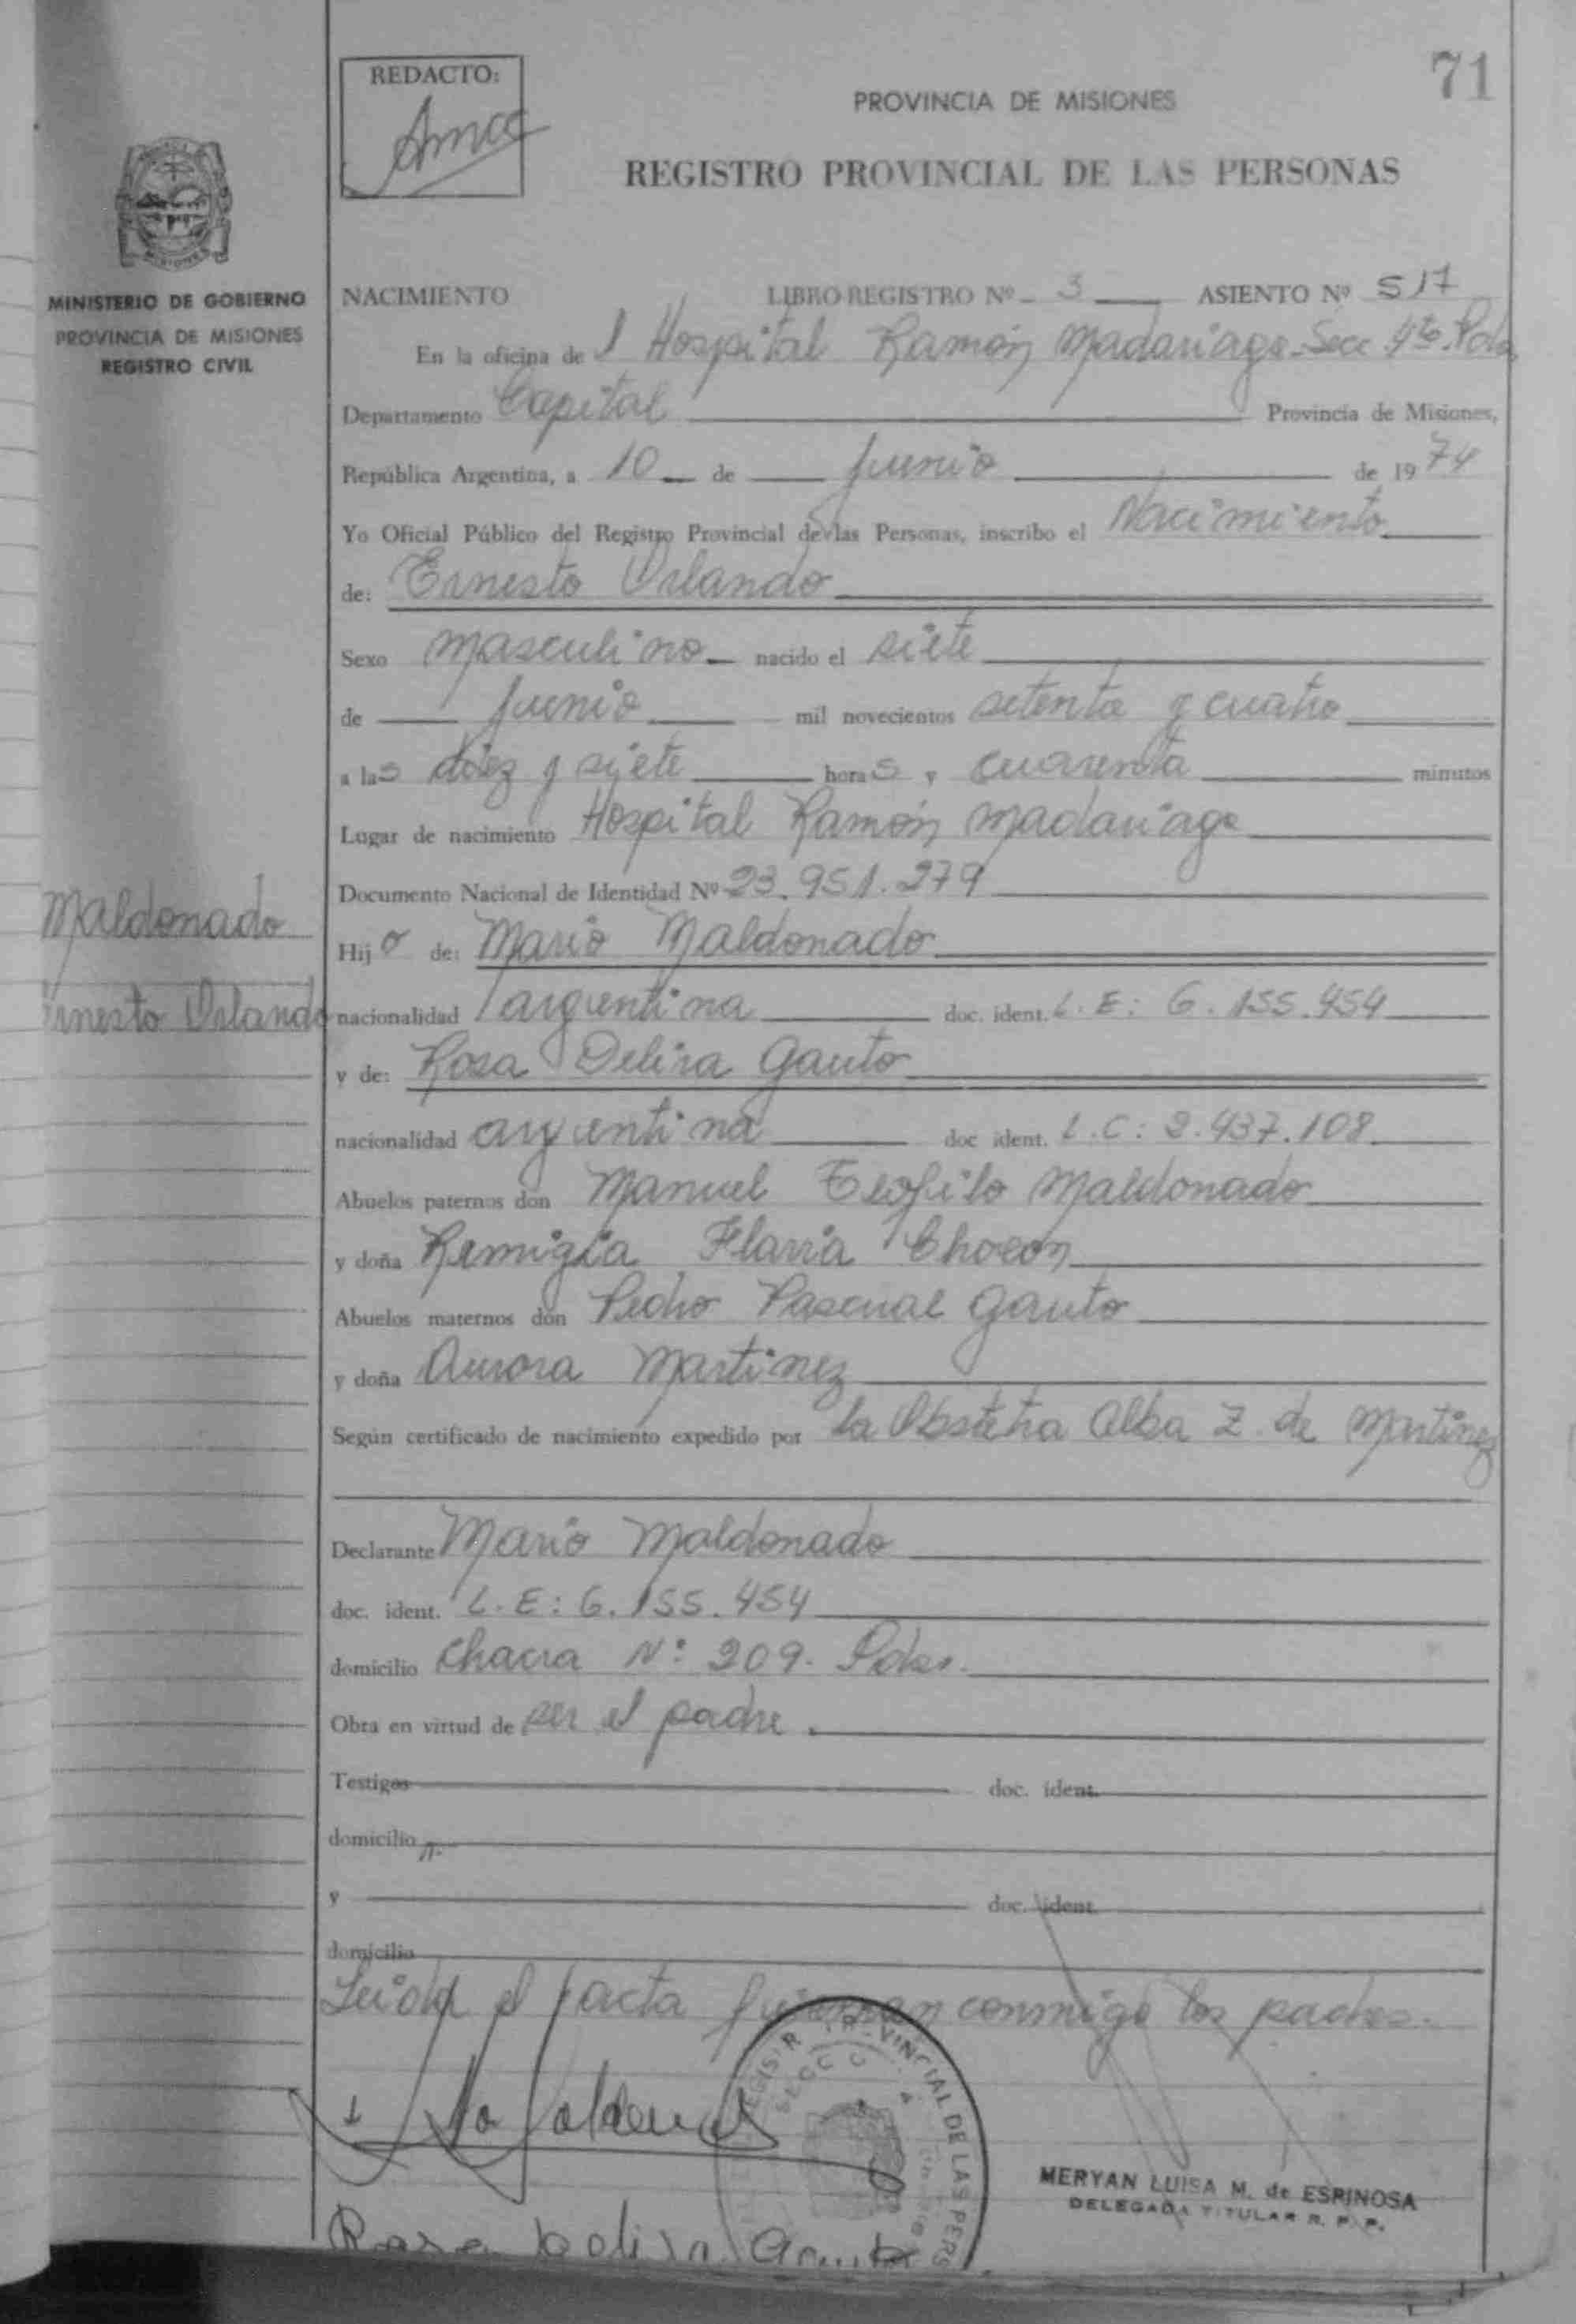 71
REDACTO:
PROVINCIA DE MISIONES
REGISTRO PROVINCIAL DE LAS PERSONAS
MINISTERIO DE GOBIERNO
PROVINCIA DE MISIONES
REGISTRO CIVIL
NACIMIENTO LIBRO REGISTRO Nº 3 ASIENTO Nº 517
En la oficina de l Hospital Ramón Madariaga - Secc 4ta. Pdas
Departamento Capital Provincia de Misiones,
República Argentina, a 10 de Junio de 1974
Yo Oficial Público del Registro Provincial de las Personas, inscribo el Nacimiento
de: Ernesto Orlando
Sexo masculino nacido el siete
de Junio mil novecientos setenta y cuatro
a las diez y siete horas y cuarenta minutos
Lugar de nacimiento Hospital Ramón Madariaga
Documento Nacional de Identidad Nº 23.951.279
Maldonado
Ernesto Orlando
Hijo de: Mario Maldonado
nacionalidad argentina doc. ident. L.E: 6.155.454
y de: Rosa Delira Gauto
nacionalidad argentina doc ident. L.C: 2.437.108
Abuelos paternos don Manuel Teofilo Maldonado
y doña Remigia Flavia
Abuelos maternos don Pedro Pascual Gauto
y doña Aurora Martinez
Según certificado de nacimiento expedido por la Obstetra Alba Z. de Martinez
Declarante Mario Maldonado
doc. ident. L.E: 6.155.454
domicilio Chacra Nº 209. Pdas.
Obra en virtud de ser el padre.
Testigos doc. ident.
domicilio
y doc. ident.
domicilio
Leida el acta firman conmigo los padres.
MERYAN LUISA M. de ESPINOSA
DELEGADA TITULAR R. P. P.